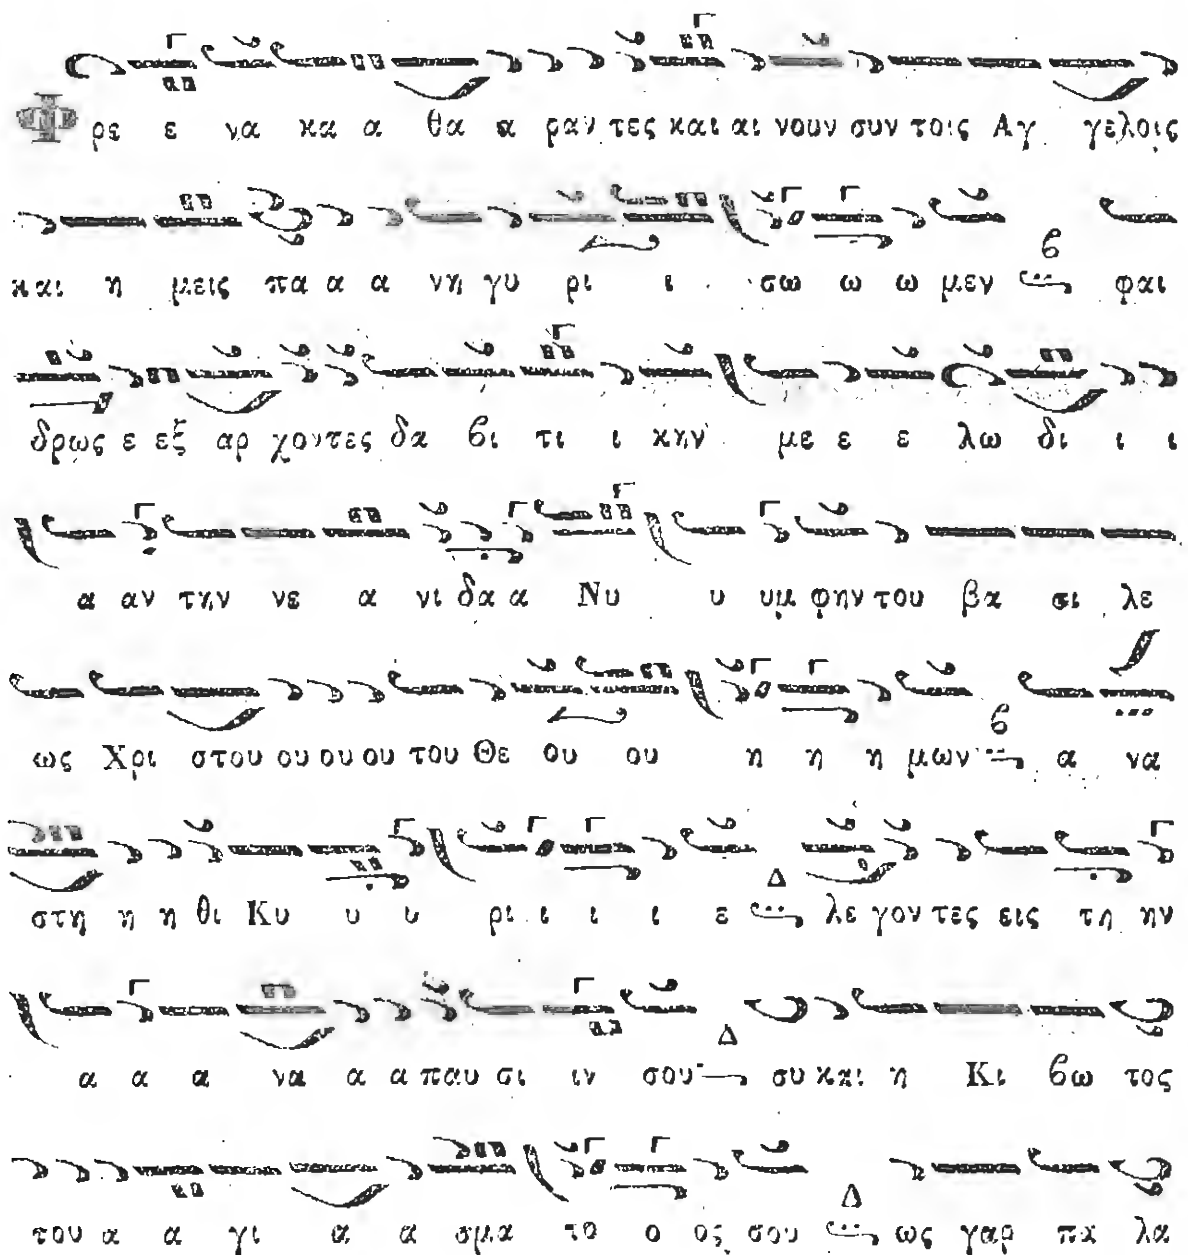 Φρε ε να κα α θα α ραν τες και αι νουν συν τοις Αγ γελοις
και η μεις πα α α νη γυ ρι ι σω ω ω μεν ϐ φαι
δρως ε εξ αρ χοντες δα ϐι τι ι κην με ε ε λω δι ι ι
α αν την νε α νι δα α Νυ υ υμ φην του βα σι λε
ως Χρι στου ου ου ου του Θε ου ου η η η μων ϐ α να
στη η η θι Κυ υ υ ρι ι ι ι ε Δ λε γον τες εις τη ην
α α α να α α παυ σι ιν σου Δ συ και η Κι ϐω τος
του α α γι α α σμα το ο ος σου Δ ως γαρ πα λα